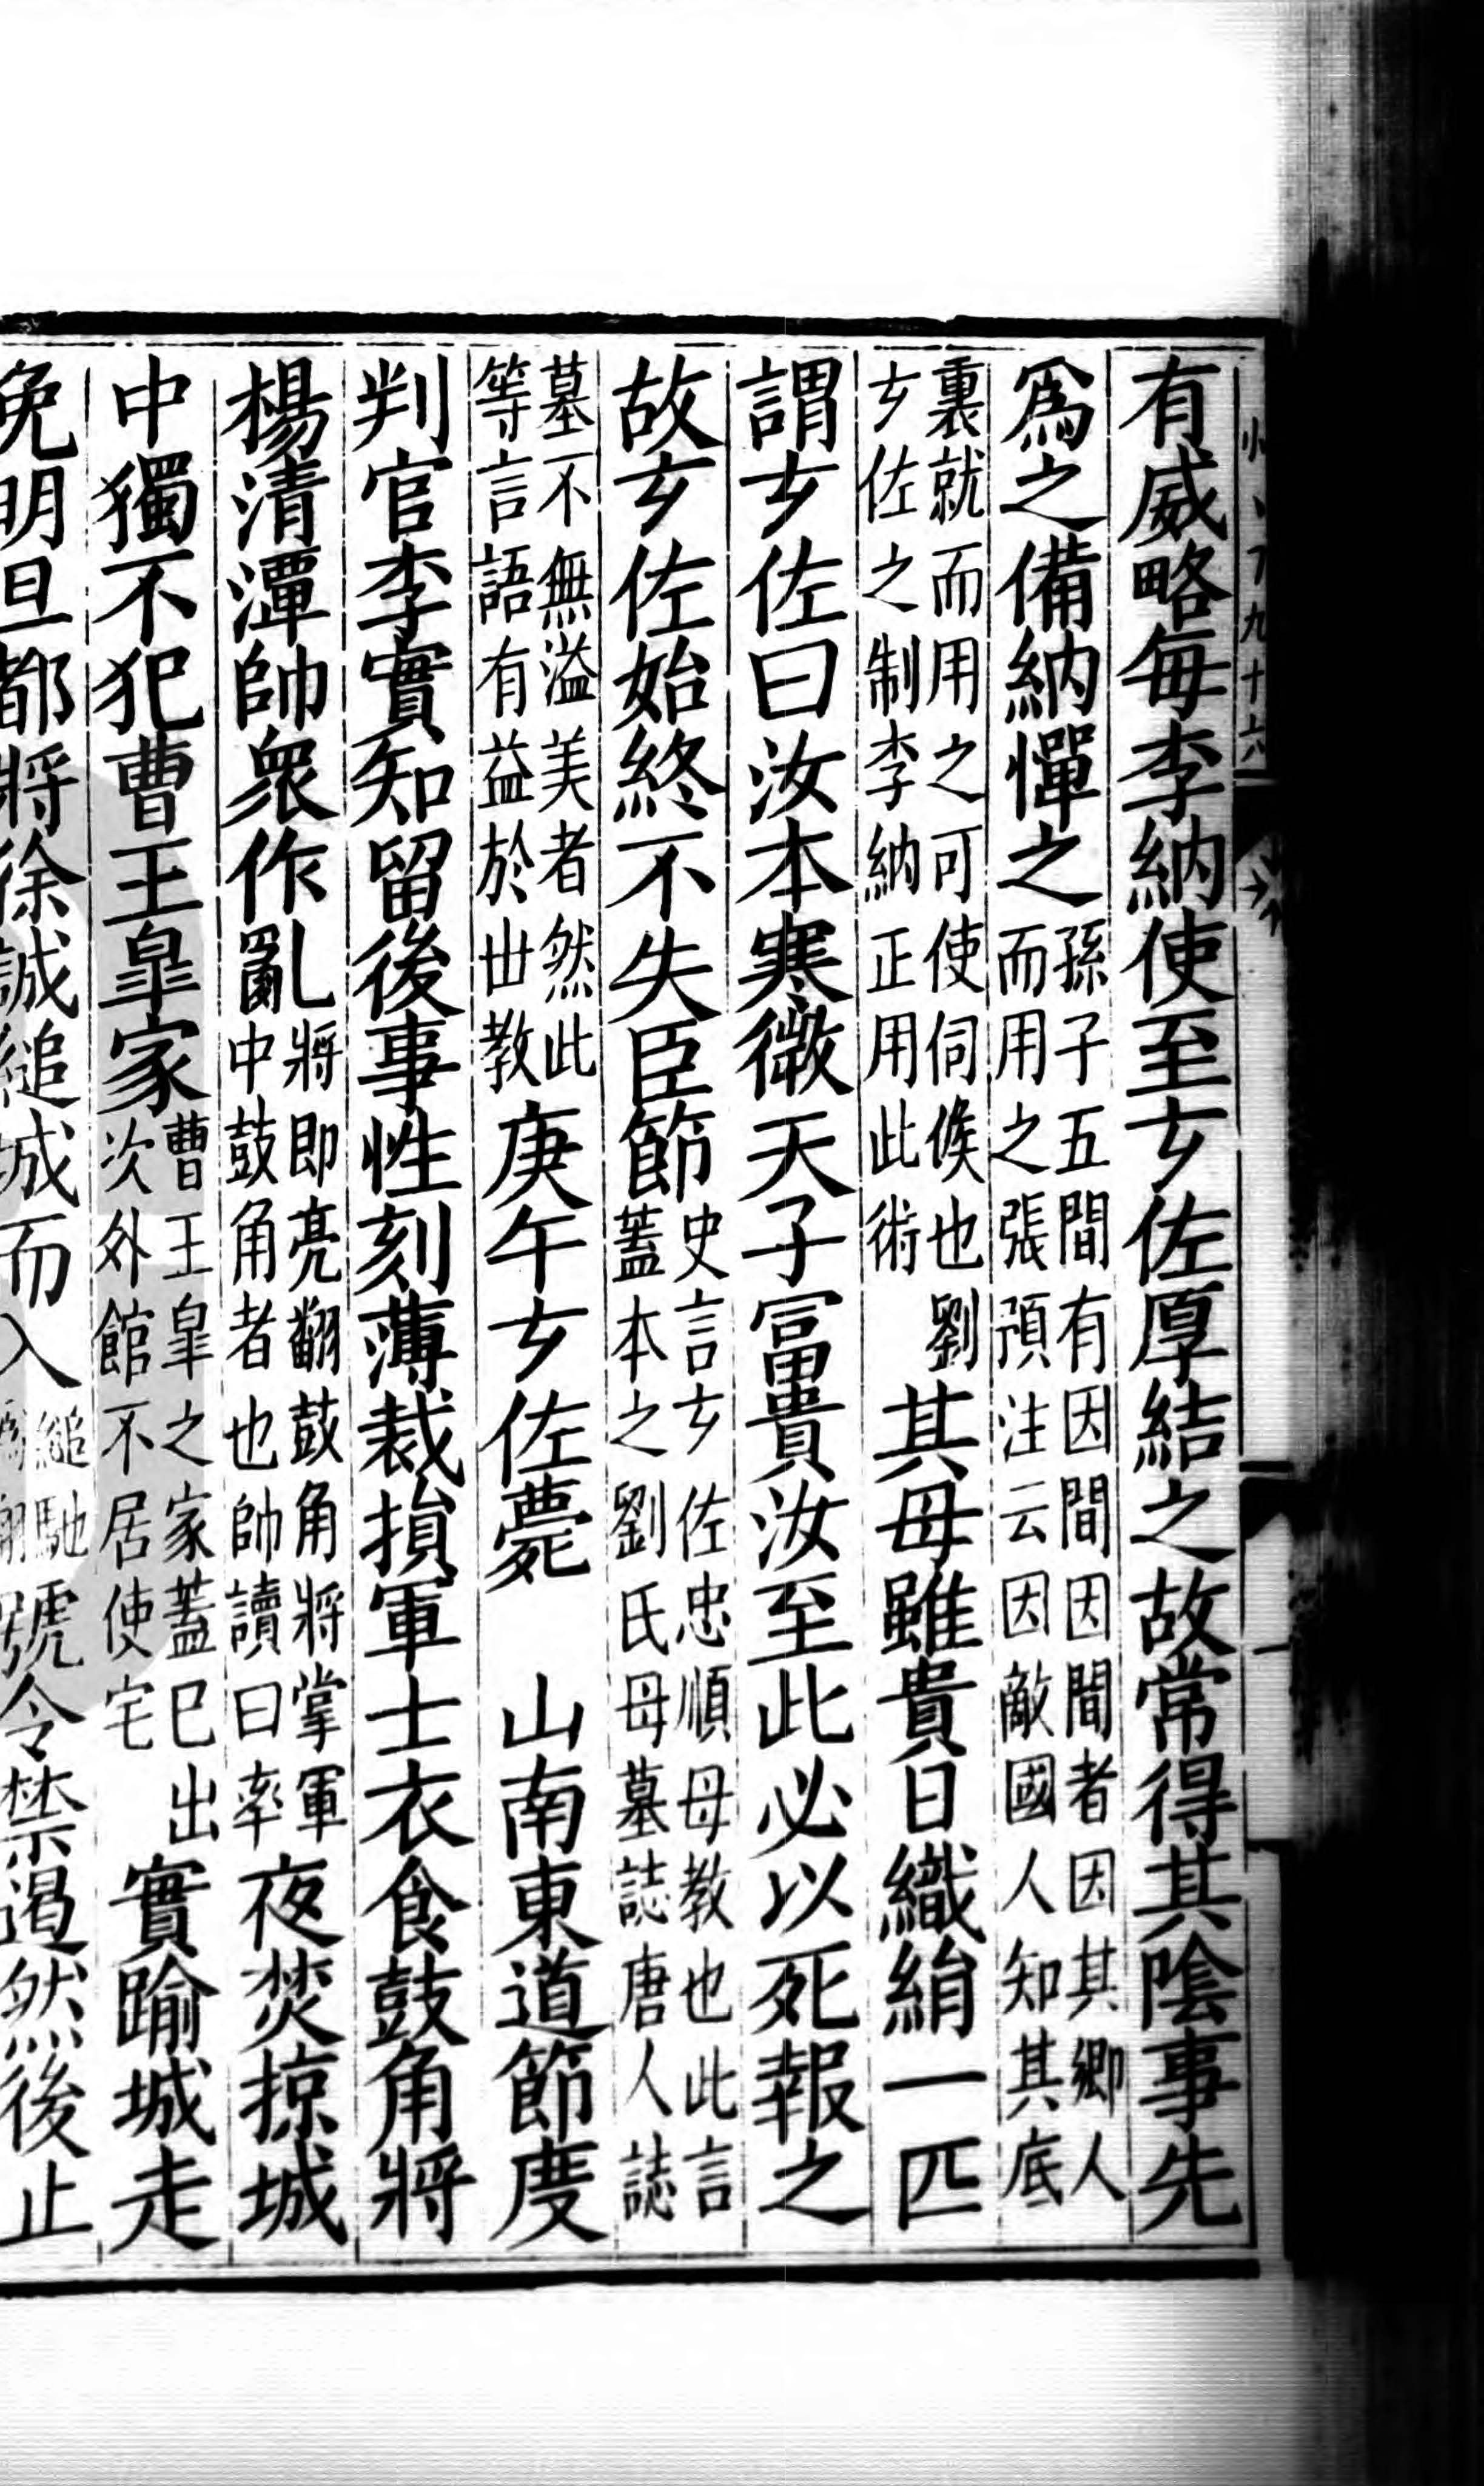 有威略每李納使至𤣥佐厚結之故常得其陰事先
爲之備納憚之孫子五間有因間因間者因其鄉人而用之張預注云因敵國人知其底
裏就而用之可使伺候也劉𤣥佐之制李納正用此術其母雖貴日織絹一匹
謂𤣥佐曰汝本寒微天子富貴汝至此必以死報之
故𤣥佐始終不失臣節史言𤣥佐忠順母教也此言蓋本之劉氏母墓誌唐人誌
墓不無溢美者然此等言語有益於世教庚午𤣥佐薨 山南東道節度
判官李實知留後事性刻薄裁損軍士衣食鼓角將
楊清潭帥衆作亂將即亮翻鼓角將掌軍中鼓角者也帥讀曰率夜焚掠城
中獨不犯曹王皐家曹王皐之家蓋已出次外館不居使宅實踰城走
免明旦都將徐誠縋城而入縋馳僞翻號令禁遏然後止